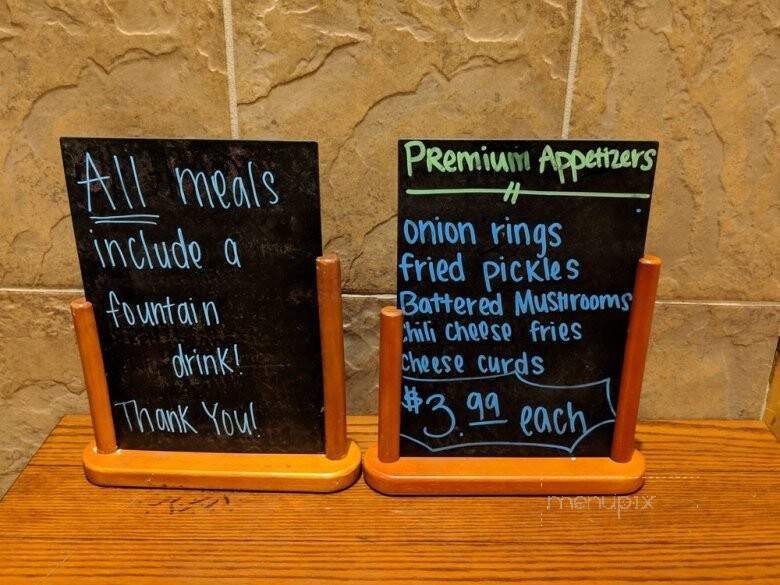 All meals
include a
fountain
drink!
Thank You!
Premium Appetizers
onion rings
fried pickles
Battered Mushrooms
chili cheese fries
cheese curds
$3.99 each
menupix